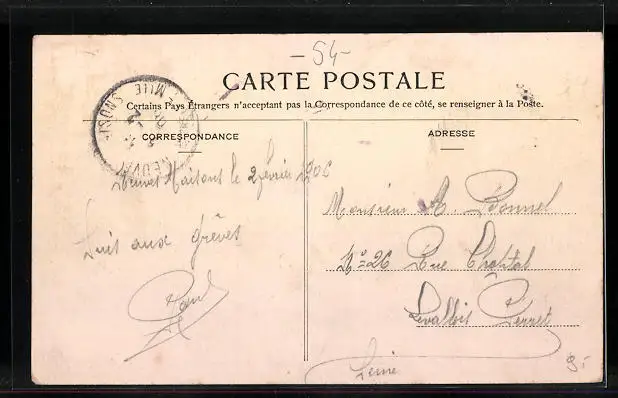 - 54 -
CARTE POSTALE
Certains Pays Étrangers n'acceptant pas la Correspondance de ce côté, se renseigner à la Poste.
CORRESPONDANCE
ADRESSE
Neuves Maisons le 2 février 1906
Suis aux grêves
Paul
Monsieur A. Bonnel
No=26 Rue Chaptal
Levallois Perret
Seine